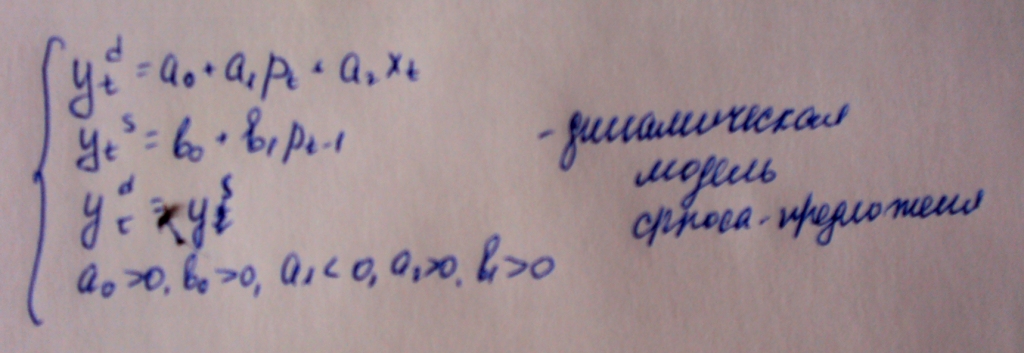 y_t^d = a_0 + a_1 p_t + a_2 x_t
y_t^s = b_0 + b_1 p_{t-1}
y_t^d = y_t^s
a_0 >0, b_0 >0, a_1 < 0, a_2 >0, b_1 >0
- динамическая
модель
спроса-предложения